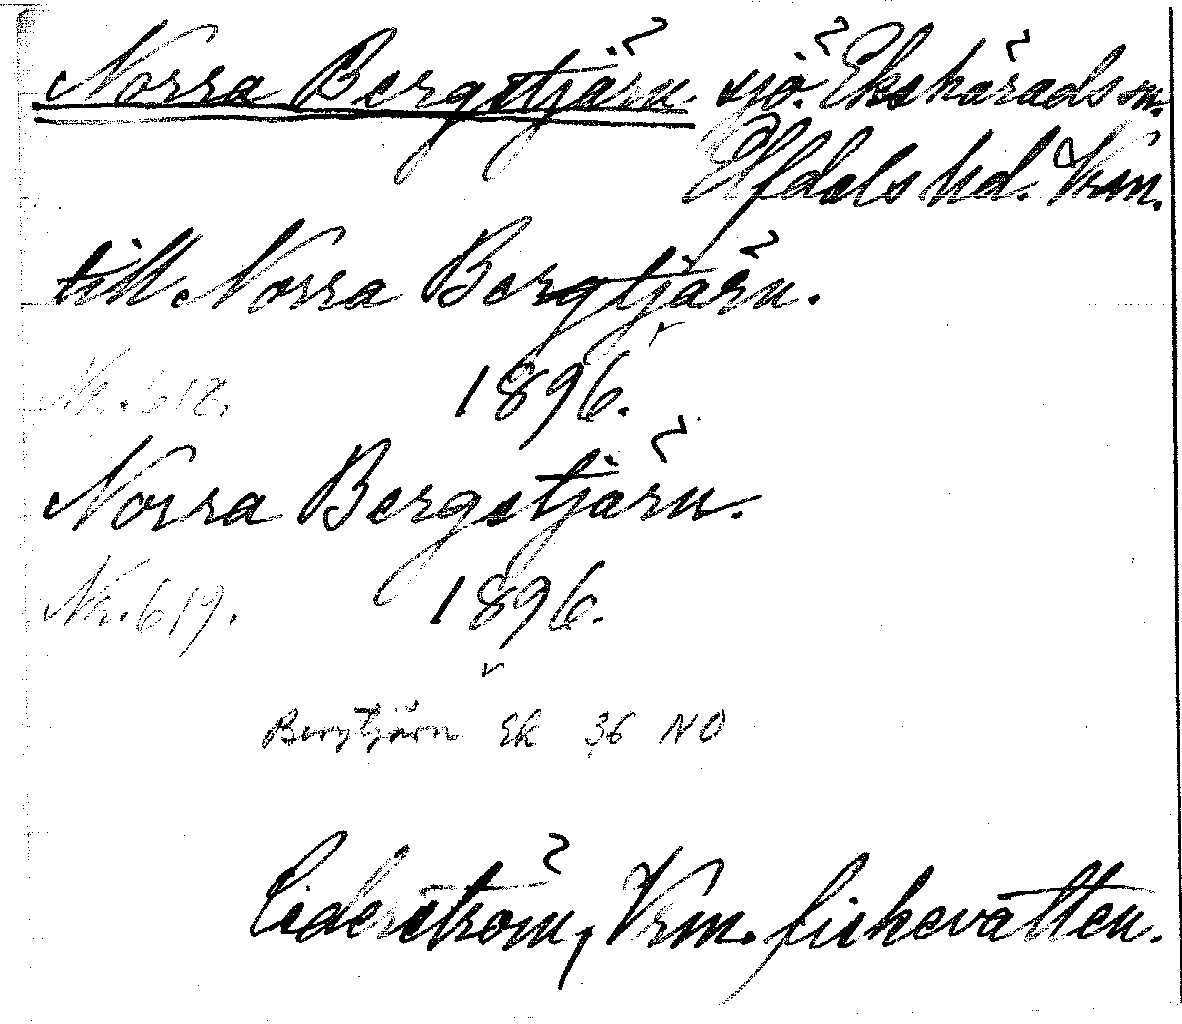 Norra Bergstjärn. sjö. Ekshärads sn.
Elfdals hd. Vrm.
till Norra Bergtjärn.
Nr. 612. 1896.
Norra Bergstjärn.
Nr. 619. 1896.
Bergtjärn Ek 36 NO
Cederström, Vrm. fiskevatten.